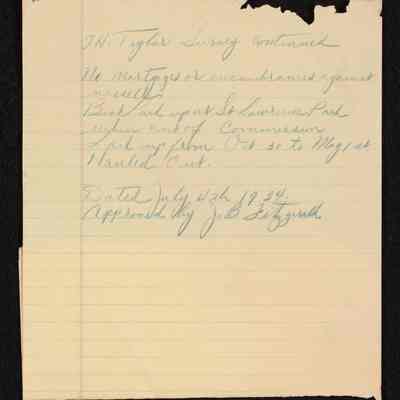 J.H. Taylor Survey Continued
No Mortgages or encumbrances against
vessels.
Boat laid up at St Lawrence Park
when out of Commission
Laid up from Oct 30 to May 1st
Hauled Out.
Dated July 4th 1934.
Approved by J.B. Fitzgerald